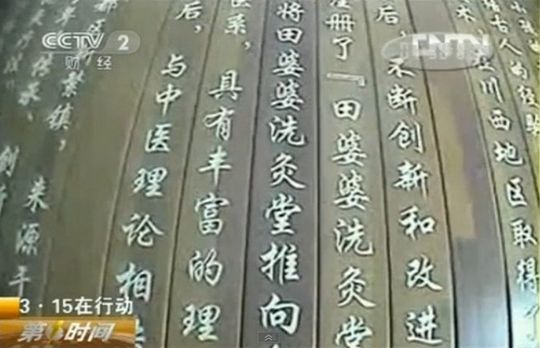 CCTV 2
财经
CNTV
古人的经验
川西地区取得了
术
后,不断创新和改进
注册了『田婆婆洗灸堂
将田婆婆洗灸堂推向
医系,具有丰富的理
后,与中医理论相
繁镇,
传承、
3·15在行动
第1时间